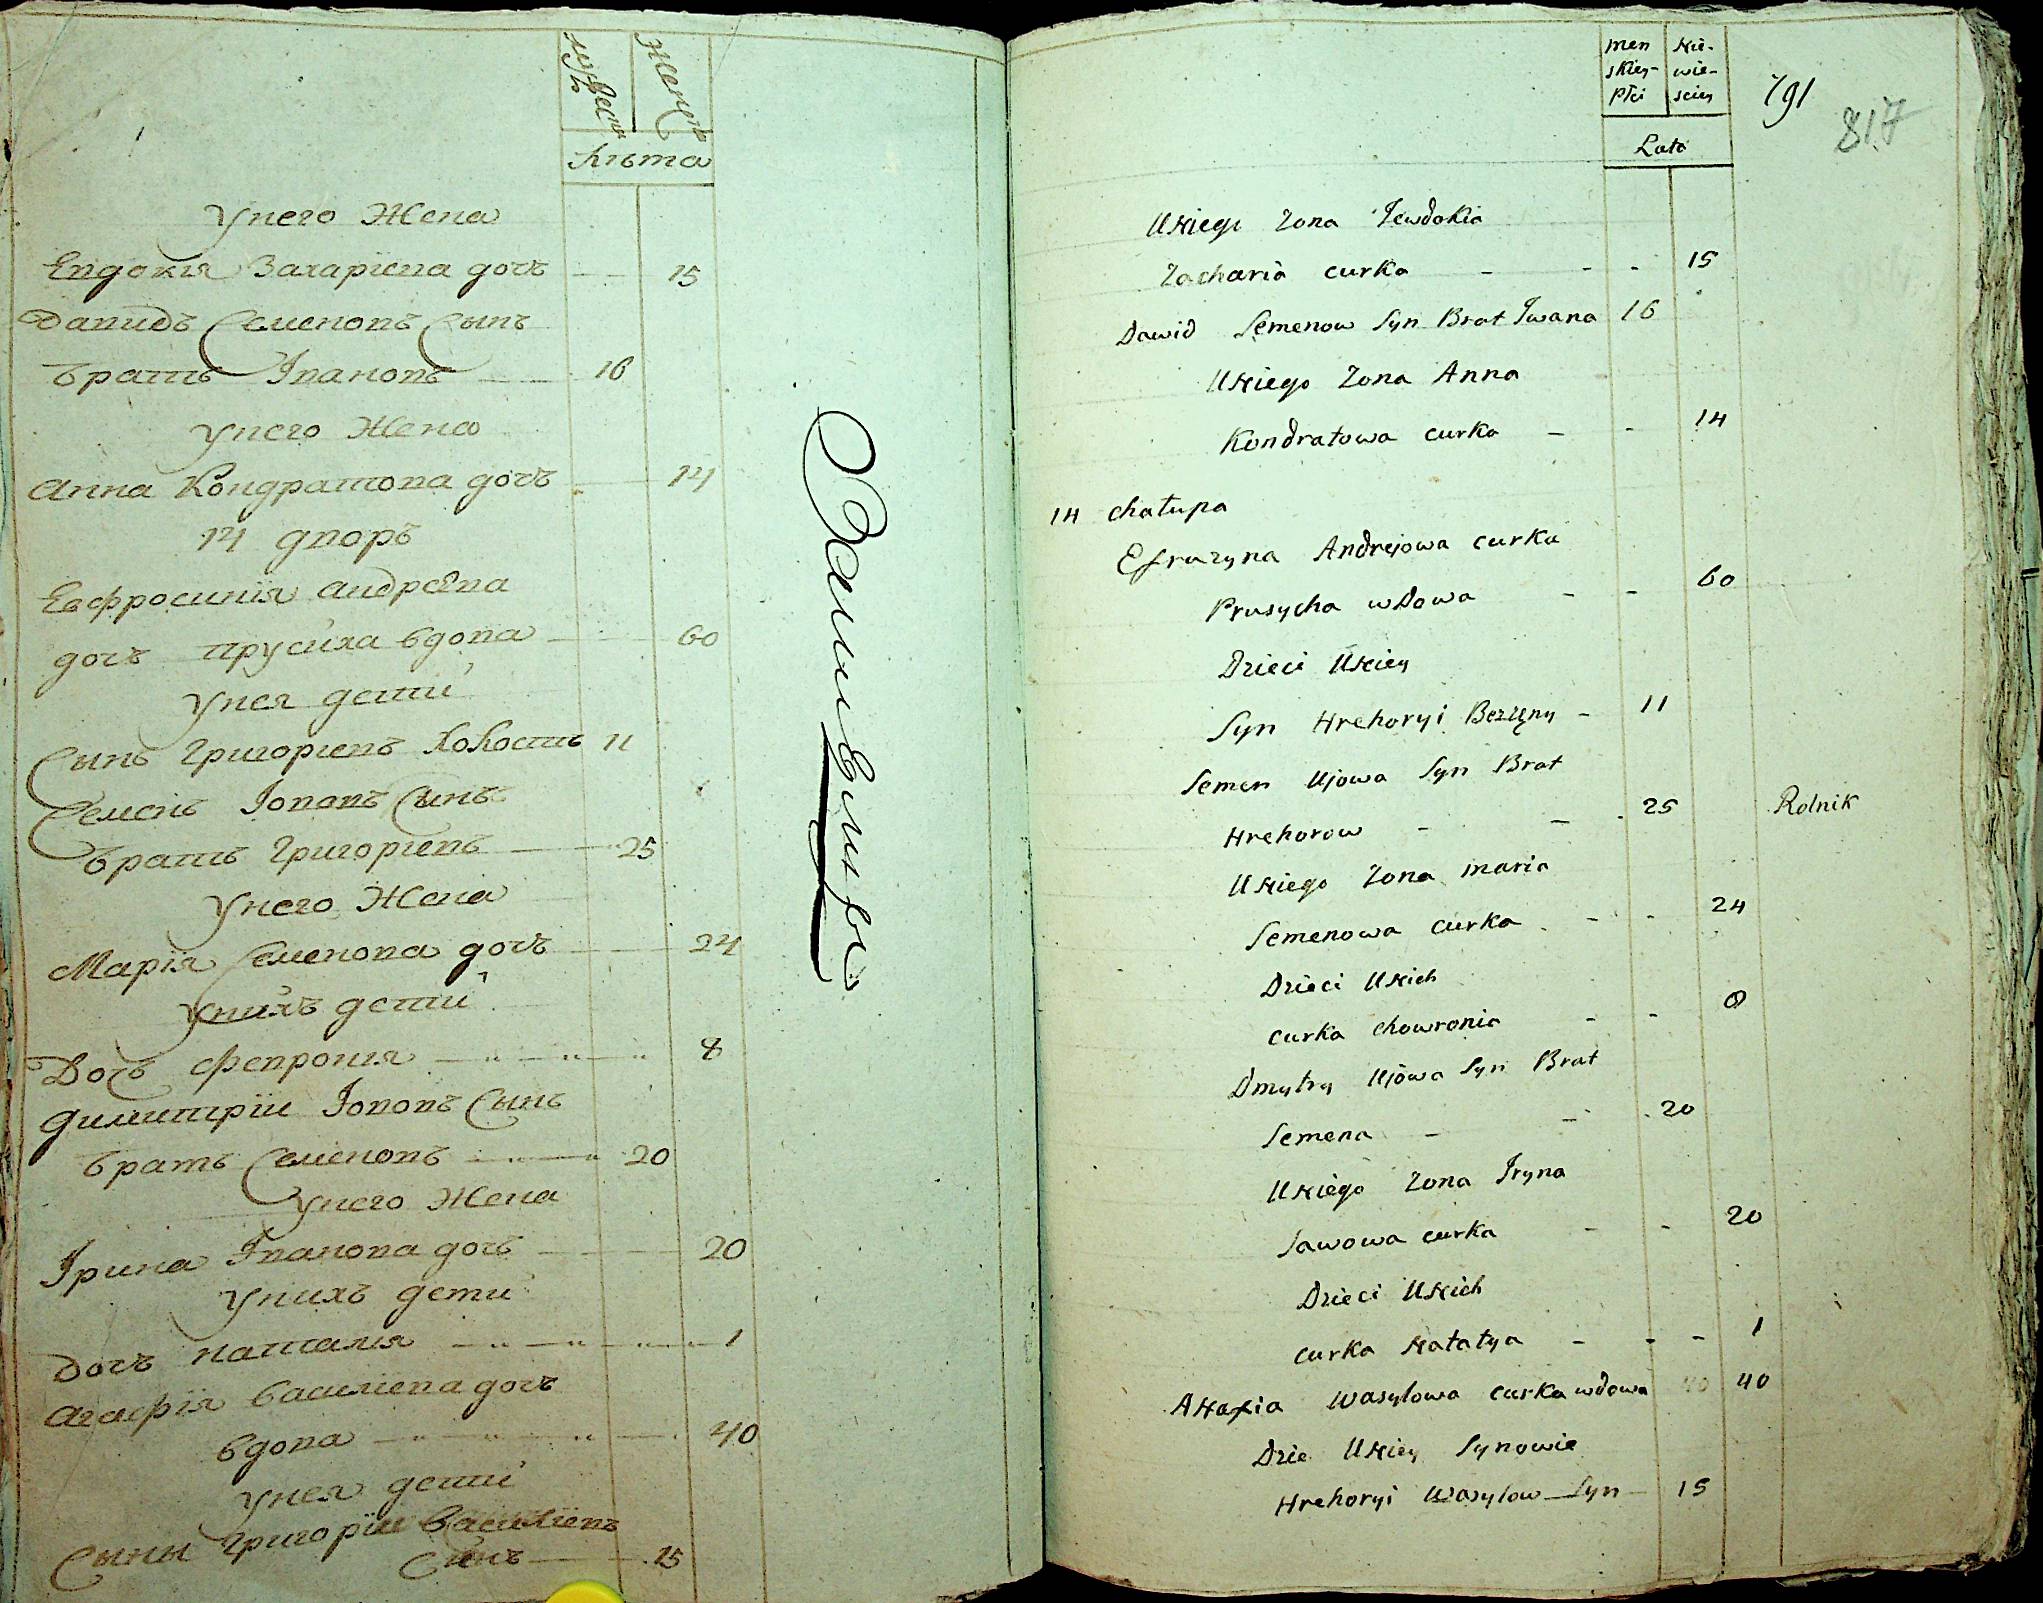 мужеска
женска
Лѣта
Унего Жена
Евдокія Захаріева дочь 15
Давидъ Семеновъ Сынъ
братъ Івановъ 16
Унего Жена
Анна Кондратова дочь 14
14 дворъ
Евфросинія Андреева
дочъ прусиха вдова 60
Унея дети
Сынъ Григоріевъ Холостъ 11
Семенъ Іовавъ Сынъ
братъ Григоріевъ 25
Унего Жена
Марія Семенова дочь 24
Унихъ дети
Дочъ Февронія 8
Димитріи Іововъ Сынъ
братъ Семеновъ 20
Унего Жена
Ірина Іванова дочь 20
Унихъ дети
Дочъ наталія 1
Агафія василіева дочъ
вдова 40
Унея дети
Сыны Григоріи Василіевъ
Сынъ 15
men
skiey
Płci
Nie-
wie-
sciey
Lata
791
817
U Niego Zona Jewdokia
Zacharia curka - - - 15
Dawid Semenow Syn Brat Iwana 16
U Niego Zona Anna
Kondratowa curka - - 14
14 chałupa
Efrazyna Andrejowa curka
Prusycha wdowa - - 60
Dzieci U Niey
Syn Hrehoryi Bezzęny - 11
Semen Ujowa Syn Brat
Hrehorow - - 25 Rolnik
U Niego Zona maria
Semenowa curka - - 24
Dzieci U Nich
curka chowronia - - 8
Dmytry Ujowa Syn Brat
Semena - - 20
U Niego Zona Iryna
Sawowa curka - - 20
Dzieci U Nich
curka Natalya - - - 1
AHafia Wasylowa curka wdowa 40 40
Dzie U Niey Synowie
Hrehoryi Wasylow Syn 15